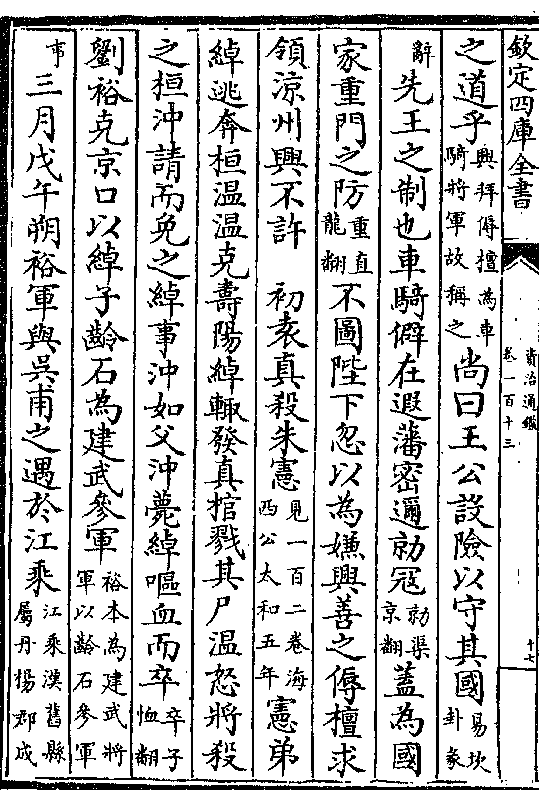 欽定四庫全書
資治通鑑
卷一百十三
十七
之道乎興拜傉檀為車騎將軍故稱之尚曰王公設險以守其國易坎卦彖
辭先王之制也車騎僻在遐藩密邇勍寇勍渠京翻蓋為國
家重門之防重直龍翻不圖陛下忽以為嫌興善之傉檀求
領涼州興不許　初袁真殺朱憲見一百二卷海西公太和五年憲弟
綽逃奔桓溫溫克壽陽綽輙發真棺戮其尸溫怒將殺
之桓沖請而免之綽事沖如父沖薨綽嘔血而卒卒子恤翻
劉裕克京口以綽子齡石為建武參軍裕本為建武將軍以齡石參軍
事三月戊午朔裕軍與吳甫之遇於江乘江乘漢舊縣屬丹楊郡成